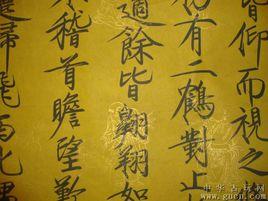 皆仰而視之
仍有二鶴對止
適餘皆翱翔如
不稽首瞻望歎
歸飛西北隅
中华古玩网
www.gucn.com